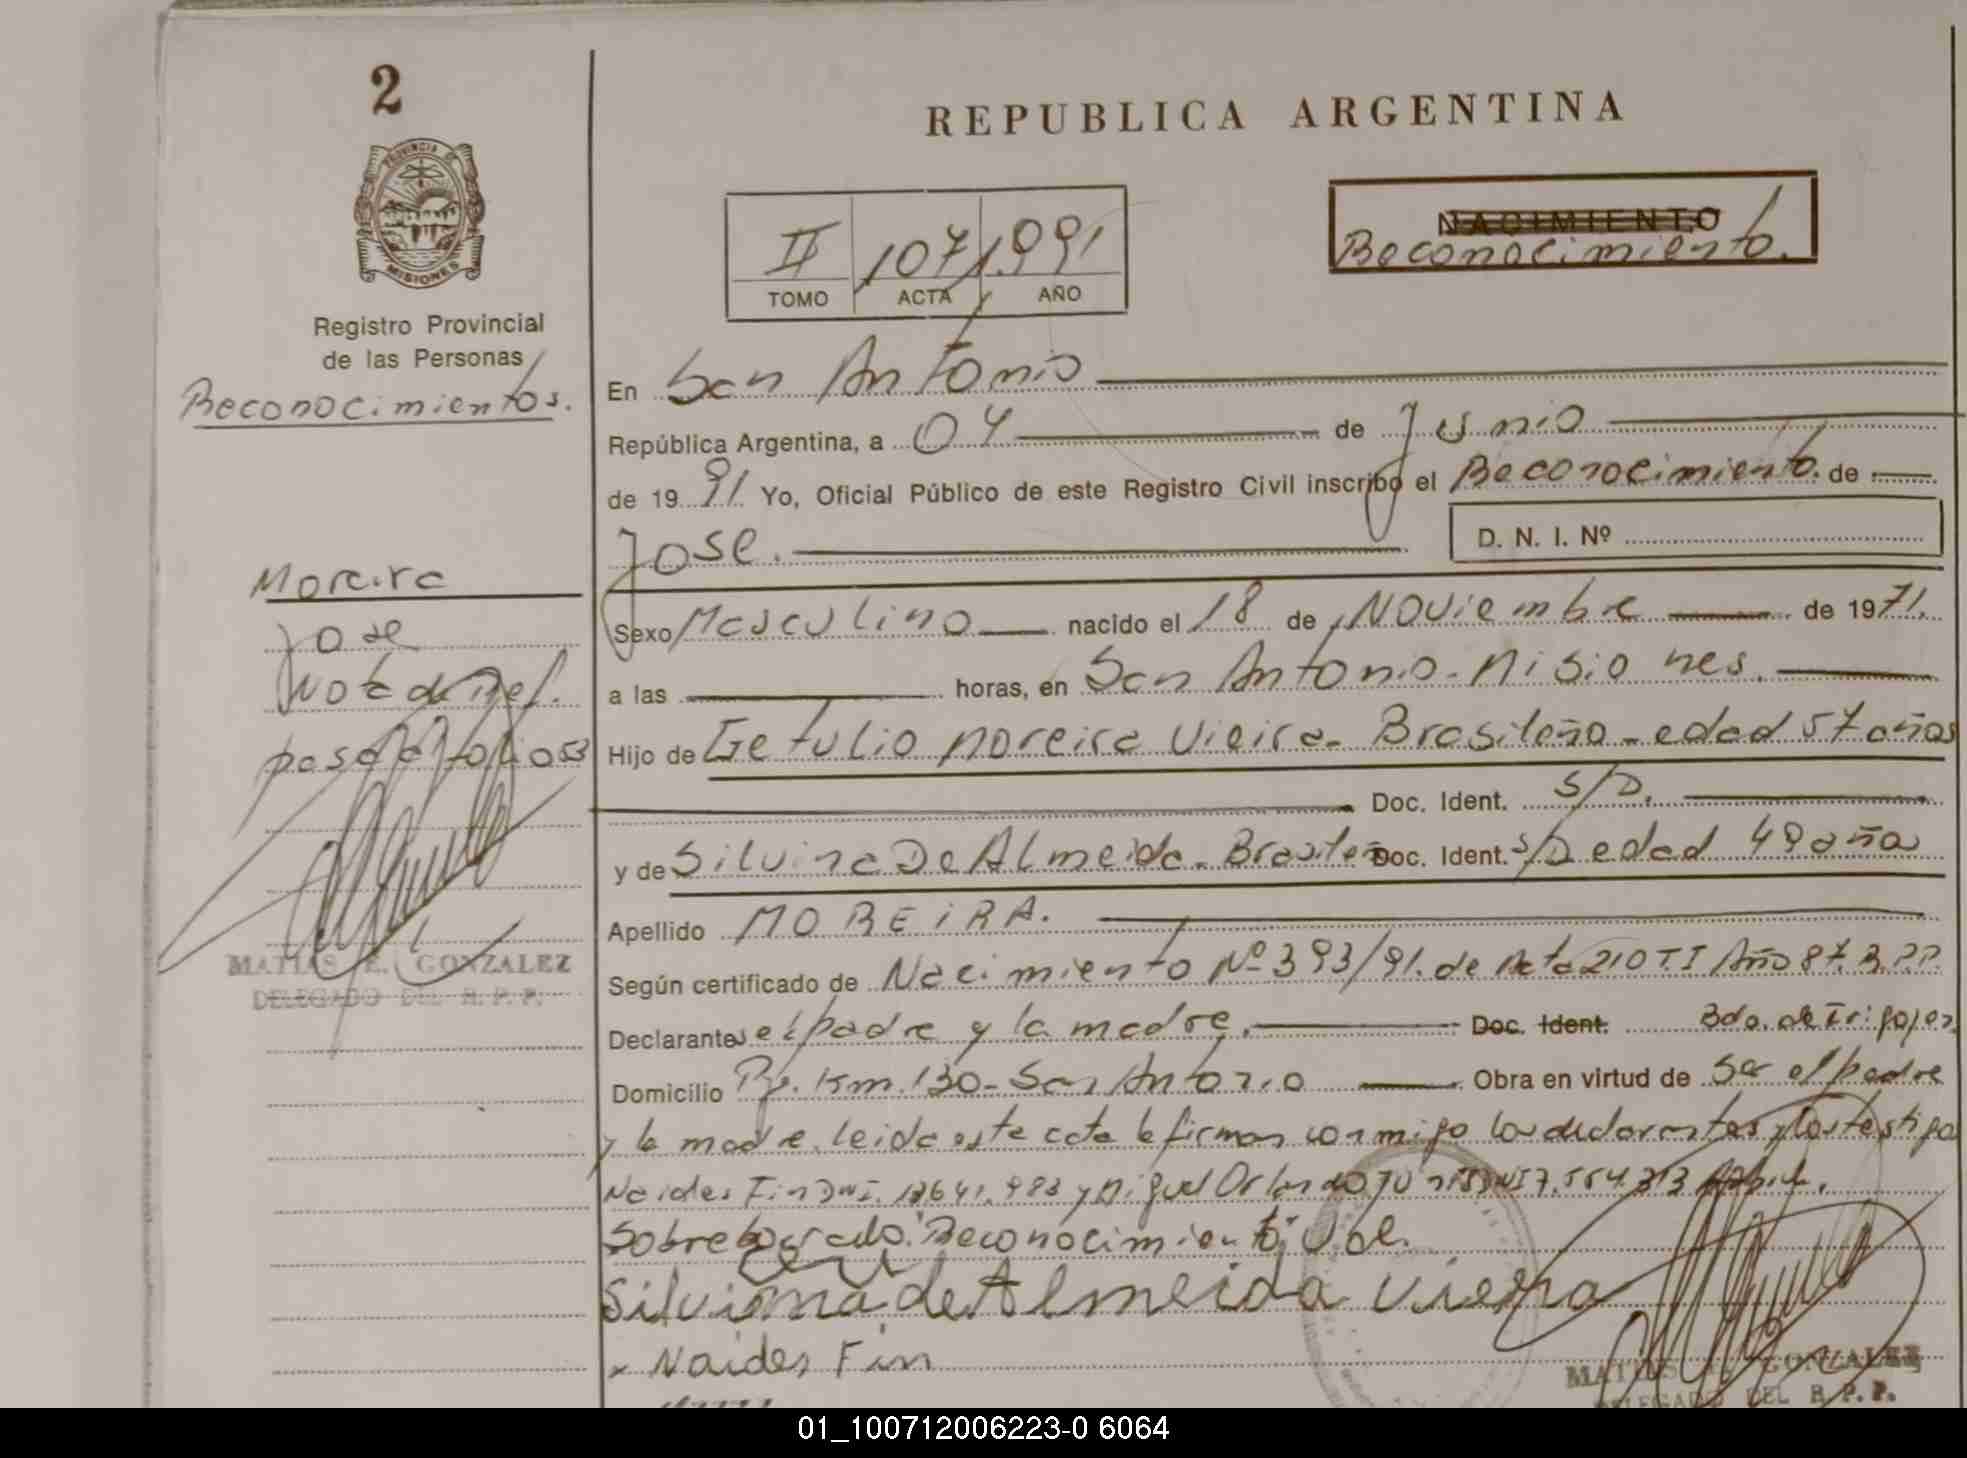 2
PROVINCIA DE
MISIONES
Registro Provincial
de las Personas
Reconocimientos.
Moreira
Jose
Nota de Ref.
pasa a folio 53
MATIAS E. GONZALEZ
DELEGADO DEL R. P. P.
REPUBLICA ARGENTINA
II 107 1.991
TOMO ACTA AÑO
NACIMIENTO
Reconocimiento.
En San Antonio
República Argentina, a 04 de Junio
de 19 91. Yo, Oficial Público de este Registro Civil inscribo el Reconocimiento. de
Jose.
D. N. I. Nº
Sexo Masculino nacido el 18 de Noviembre de 1971.
a las horas, en San Antonio-Misiones.
Hijo de Getulio Moreira Vieira- Brasileño-edad 57 años
Doc. Ident. S/D.
y de Silvina De Almeida-Brasileña Doc. Ident. S/D edad 49 años
Apellido MOREIRA.
Según certificado de Nacimiento Nº 393/91. de Acta 210 T.I Año 87. R.P.P.
Declarantes el padre y la madre. Doc. Ident. Bdo. de Irigoyen
Domicilio Km. 130-San Antonio Obra en virtud de Ser el padre
y la madre. leida este acta la firman conmigo los declarantes y los testigos
Naides Fin DNI. y Miguel Orlando DNI 7.554.313
Sobreborrado: Reconocimiento. Vale.
Silvina de Almeida Vieira
x Naides Fin
MATIAS E. GONZALEZ
DELEGADO DEL R. P. P.
01_100712006223-0 6064